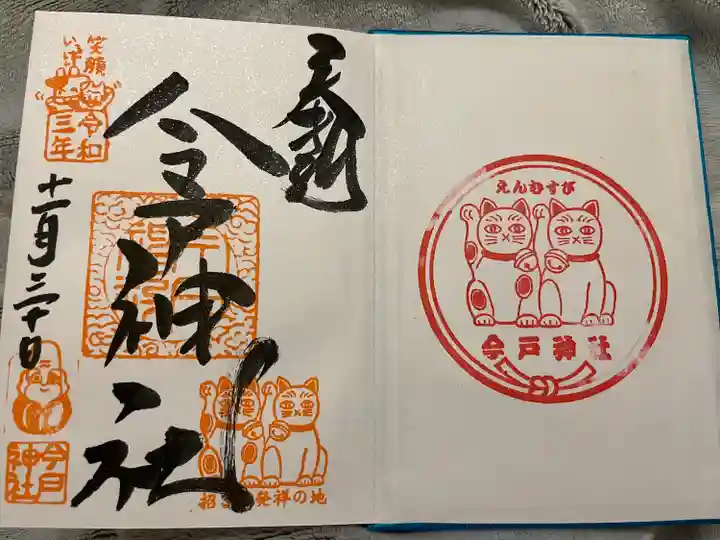 奉拝
今戸神社
笑顔
いっぱい
令和
三年
十一月三十日
今戸
神社
招き 発祥の地
えんむすび
今戸神社